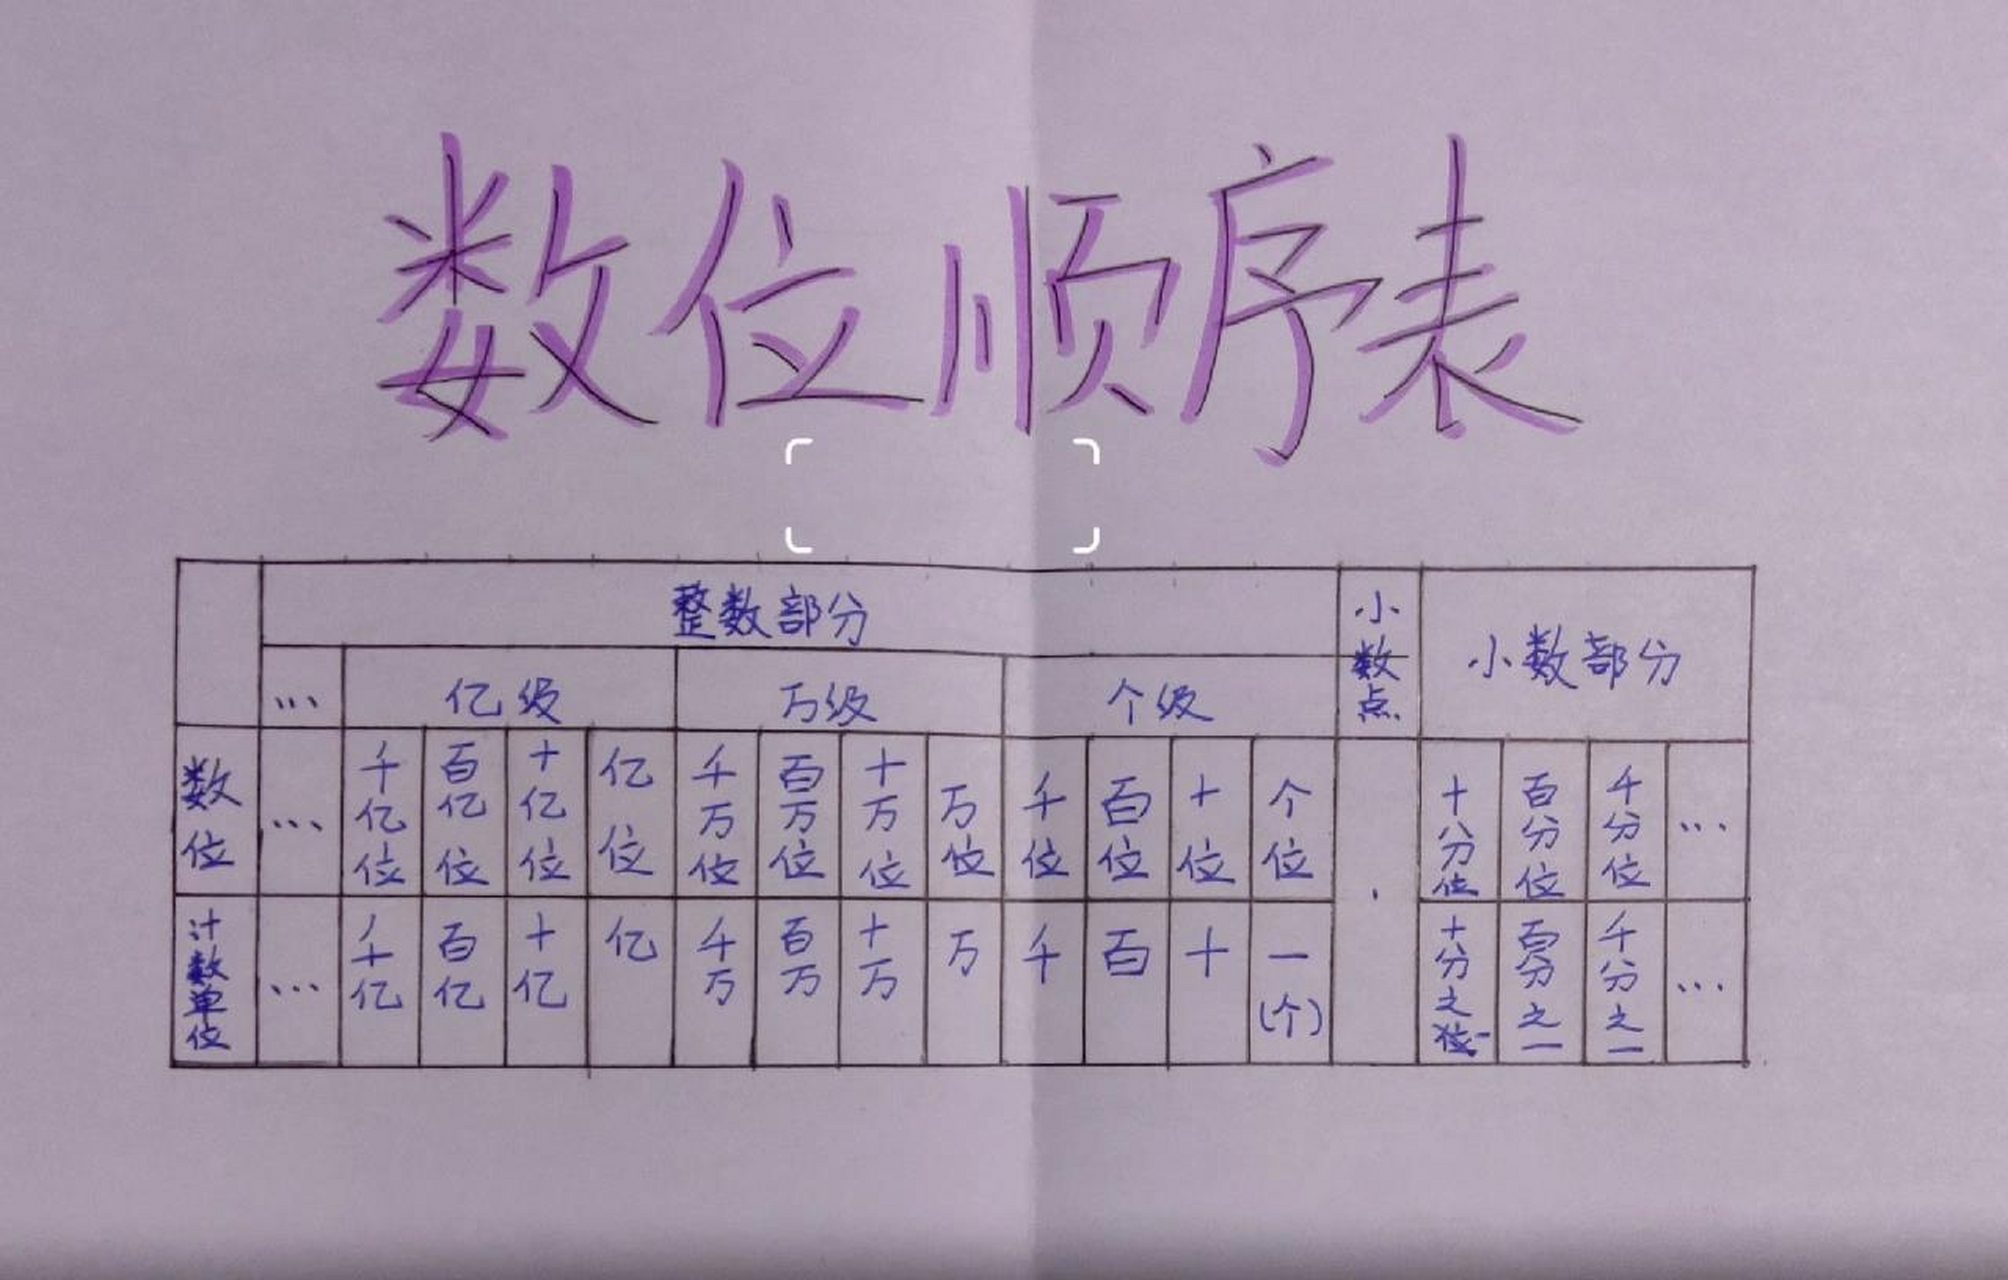 数位顺序表
整数部分 小数点 小数部分
… 亿级 万级 个级
数位 … 千亿位 百亿位 十亿位 亿位 千万位 百万位 十万位 万位 千位 百位 十位 个位 . 十分位 百分位 千分位 …
计数单位 … 千亿 百亿 十亿 亿 千万 百万 十万 万 千 百 十 一(个) 十分之一 百分之一 千分之一 …